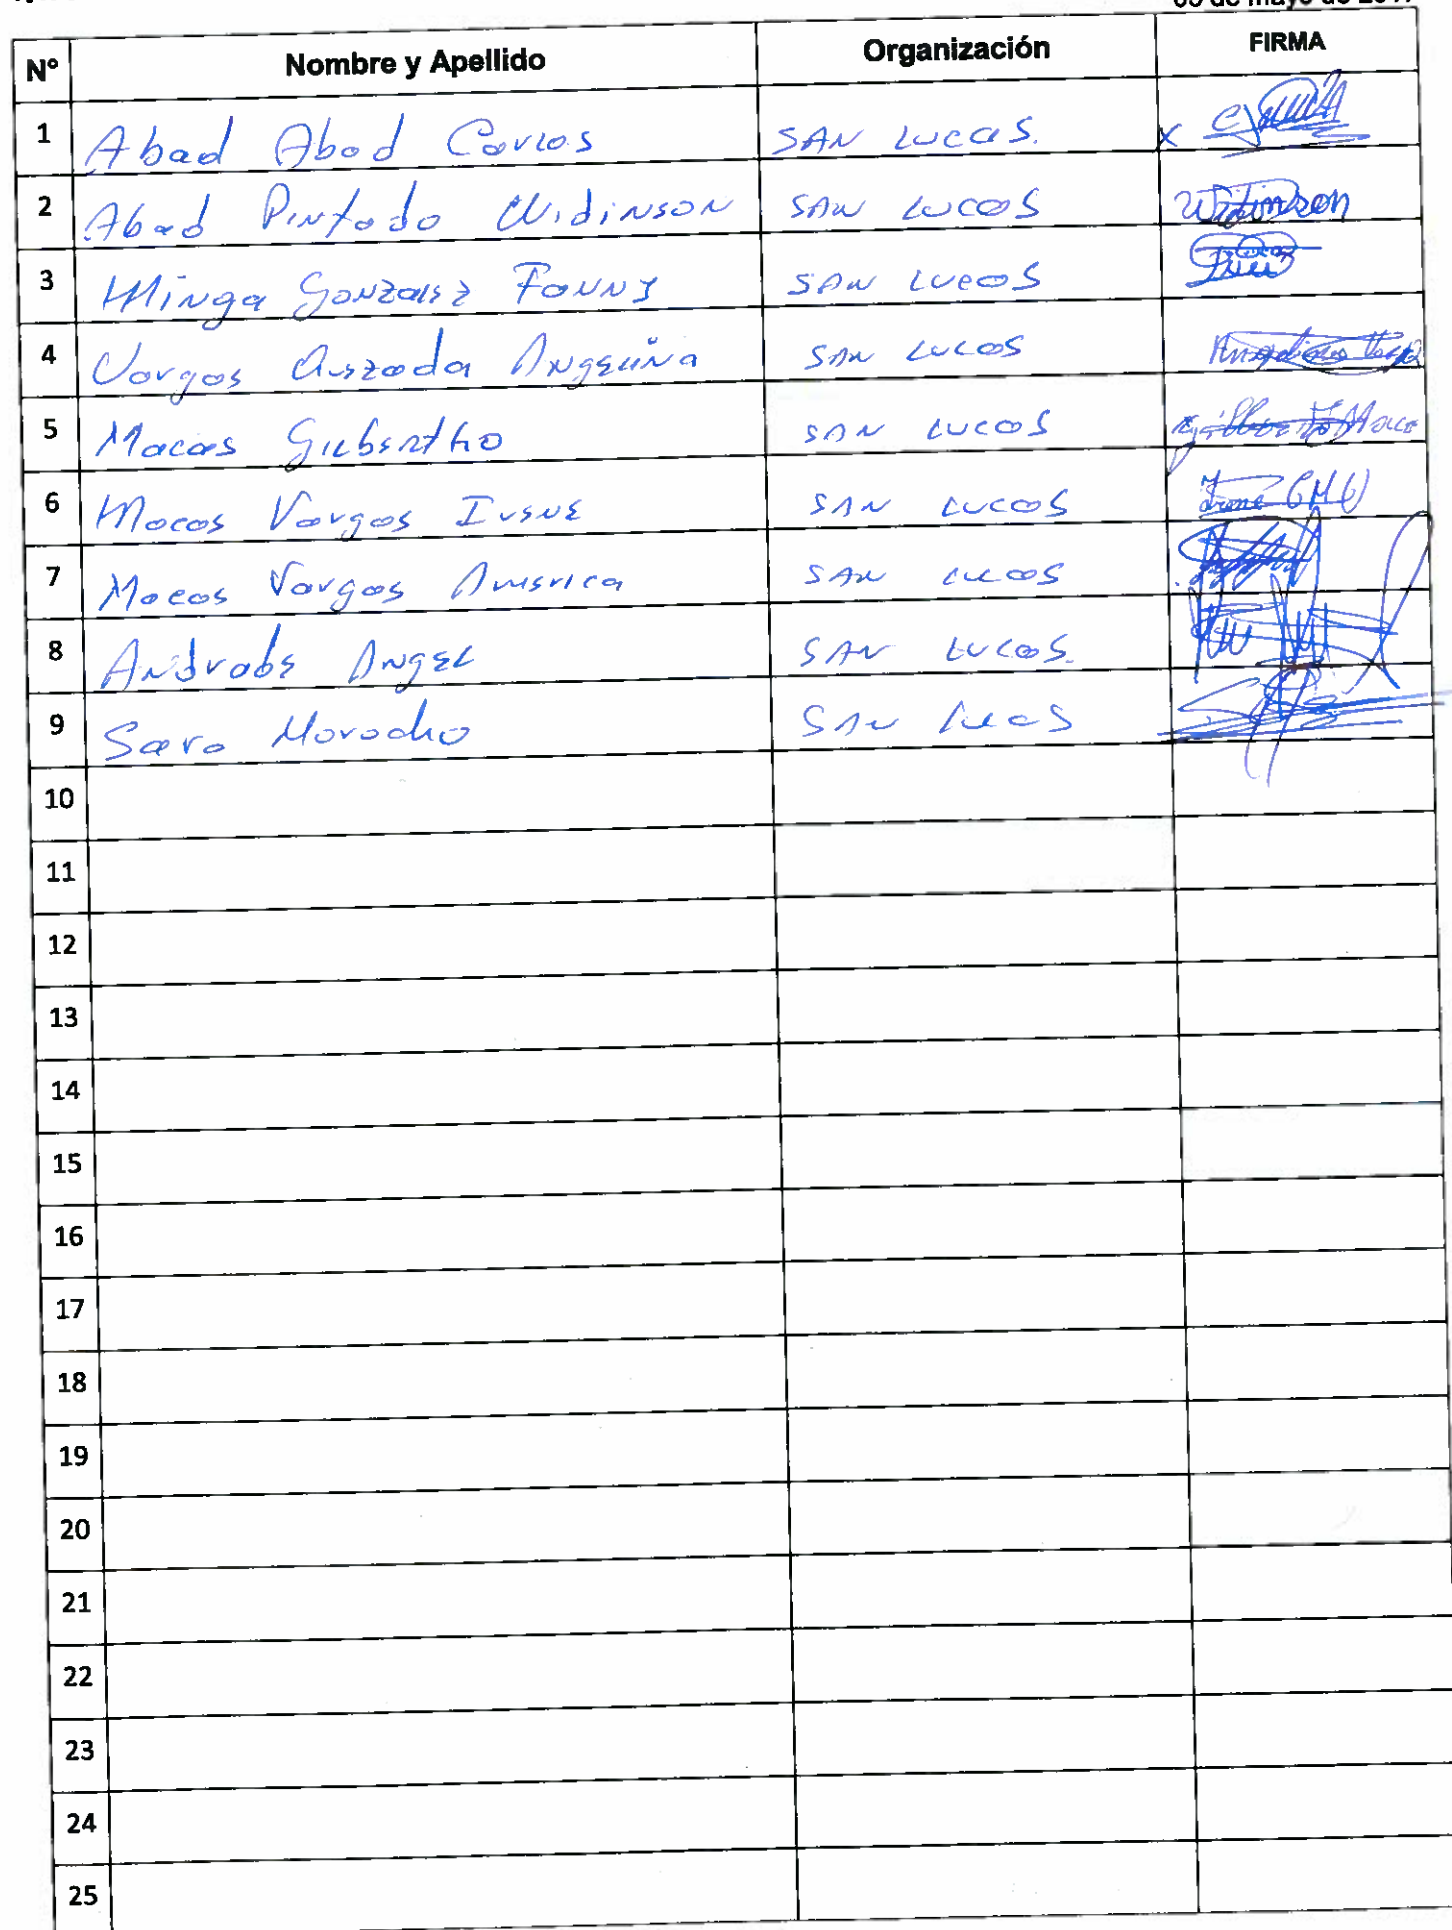 de mayo de 2017
N° Nombre y Apellido Organización FIRMA
1 Abad Abad Carlos SAN LUCAS. x
2 Abad Pintado Widinson SAN LUCAS Widinson
3 Minga Gonzalez Fanny SAN LUCAS
4 Vargas Angelina SAN LUCAS Angelina
5 Macas Gilbertho SAN LUCAS
6 Macas Vargas Irene SAN LUCAS Irene CMV
7 Macas Vargas America SAN LUCAS
8 Andrade Angel SAN LUCAS.
9 Sara Morocho SAN LUCAS
10
11
12
13
14
15
16
17
18
19
20
21
22
23
24
25